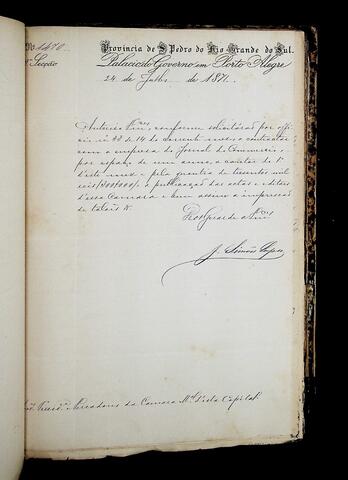 Nº 1470
Provincia de S. Pedro do Rio Grande do Sul.
Secção Palacio do Governo em Porto Alegre
24 de Julho de 1871.
Autoriso Vmces, conforme solicitarão por offi-
cio nº 22 de 14 do corrente mez, a contractar
com a empreza do Jornal do Commercio,
por espaço de um anno, a contar do 1º
d'este mez e pela quantia de trezentos mil
reis (300$000), a publicação das actas e editaes
d'essa Camara e bem assim a impressão
de talões &.
Deos Guarde a Vmces
J. Simões Lopes
Vereadores da Camara Mal d'esta Capital